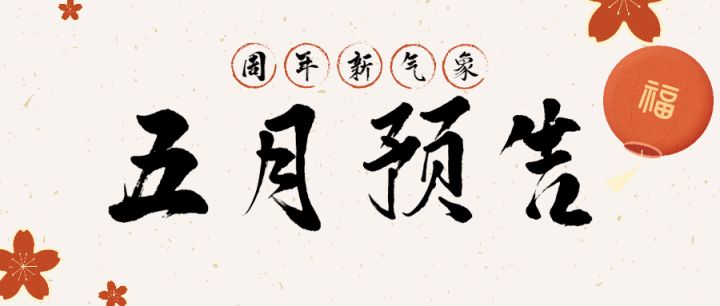 周年新气象
五月预告
福